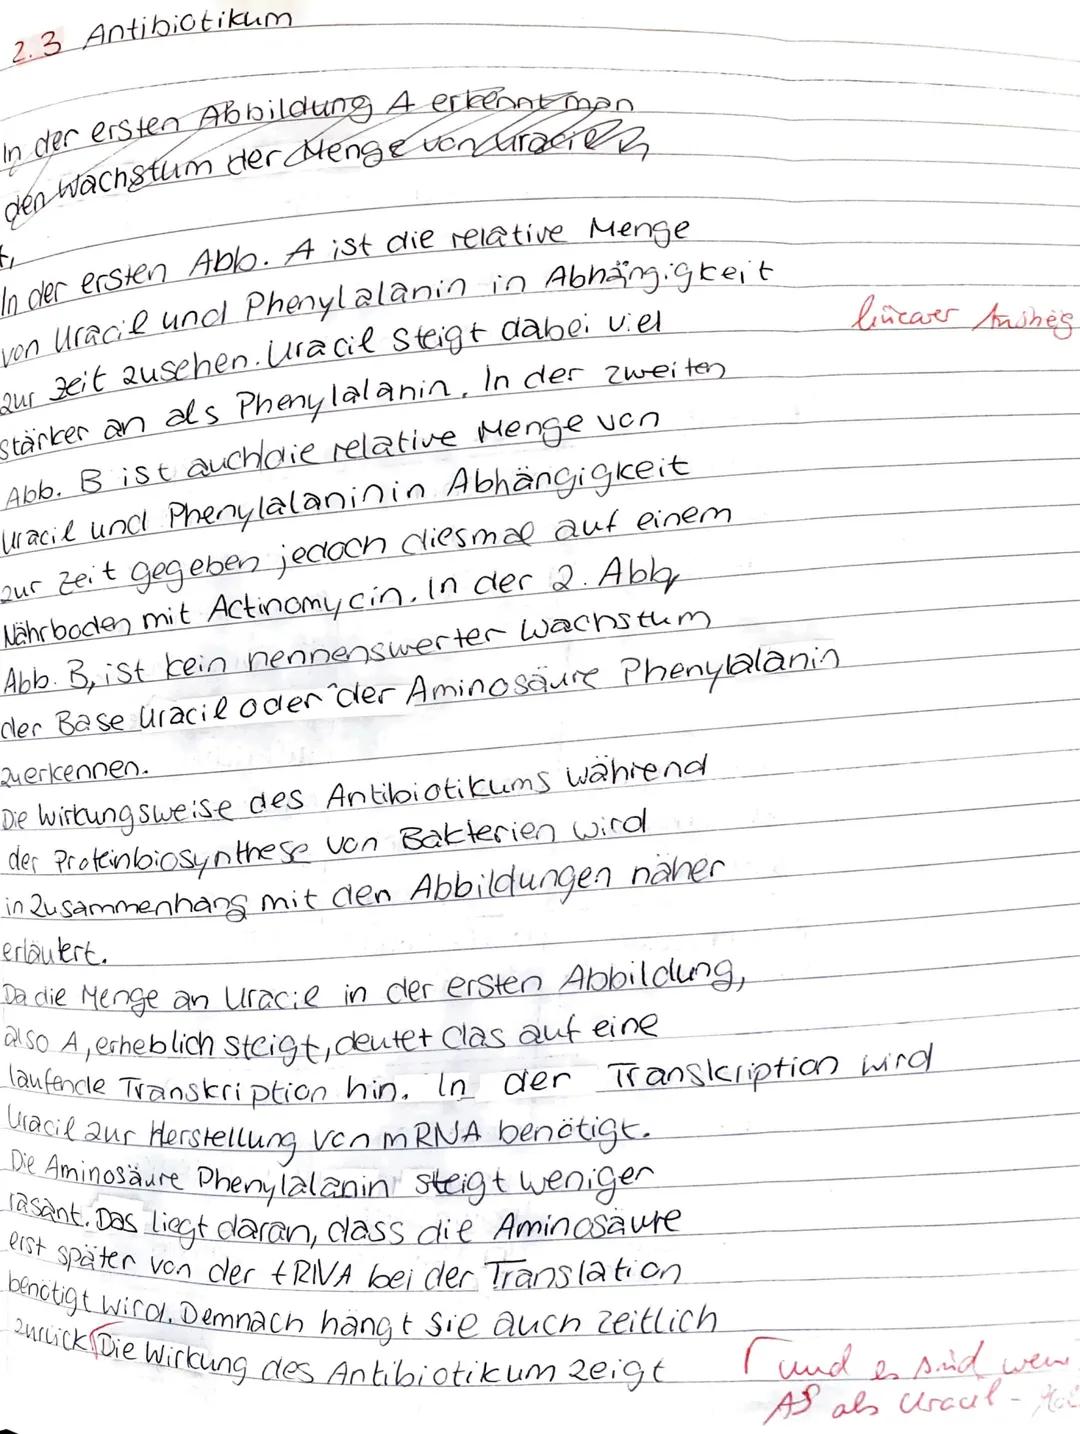 2.3 Antibiotikum
In der ersten Abbildung A erkennt man
den Wachstum der Menge von Uracil
In der ersten Abb. A ist die relative Menge
von Uracil und Phenylalanin in Abhängigkeit
zur Zeit zusehen. Uracil steigt dabei viel
linearer Anstieg
stärker an als Phenylalanin. In der zweiten
Abb. B ist auch die relative Menge von
Uracil und Phenylalanin in Abhängigkeit
zur Zeit gegeben jedoch diesmal auf einem
Nährboden mit Actinomycin. In der 2. Abb,
Abb. B, ist kein nennenswerter Wachstum
der Base Uracil oder der Aminosäure Phenylalanin
zuerkennen.
Die Wirkungsweise des Antibiotikums während
der Proteinbiosynthese von Bakterien wird
in Zusammenhang mit den Abbildungen näher
erläutert.
Da die Menge an Uracil in der ersten Abbildung,
also A, erheblich steigt, deutet das auf eine
laufende Transkription hin. In der Transkription wird
Uracil zur Herstellung von mRNA benötigt.
Die Aminosäure Phenylalanin steigt weniger
rasant. Das liegt daran, dass die Aminosäure
erst später von der tRNA bei der Translation
benötigt wird. Demnach hängt sie auch zeitlich
zurück Die Wirkung des Antibiotikum zeigt
und es sind
AS als Uracil -